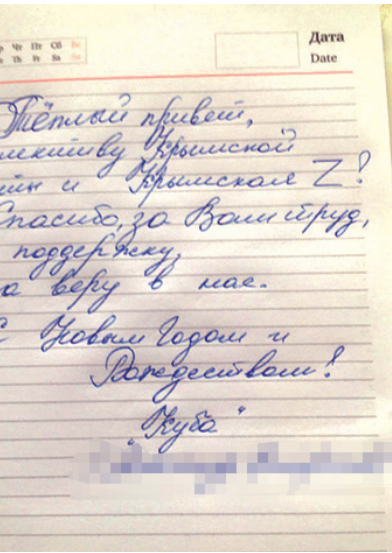 Чт Пт Сб Вс Дата
Th Fr Sa Su Date
Тёплый привет,
лективу Крымской
и Крымская Z!
Спасибо за Ваш труд,
поддержку,
а веру в нас.
С Новым Годом и
Рождеством!
"Куба"